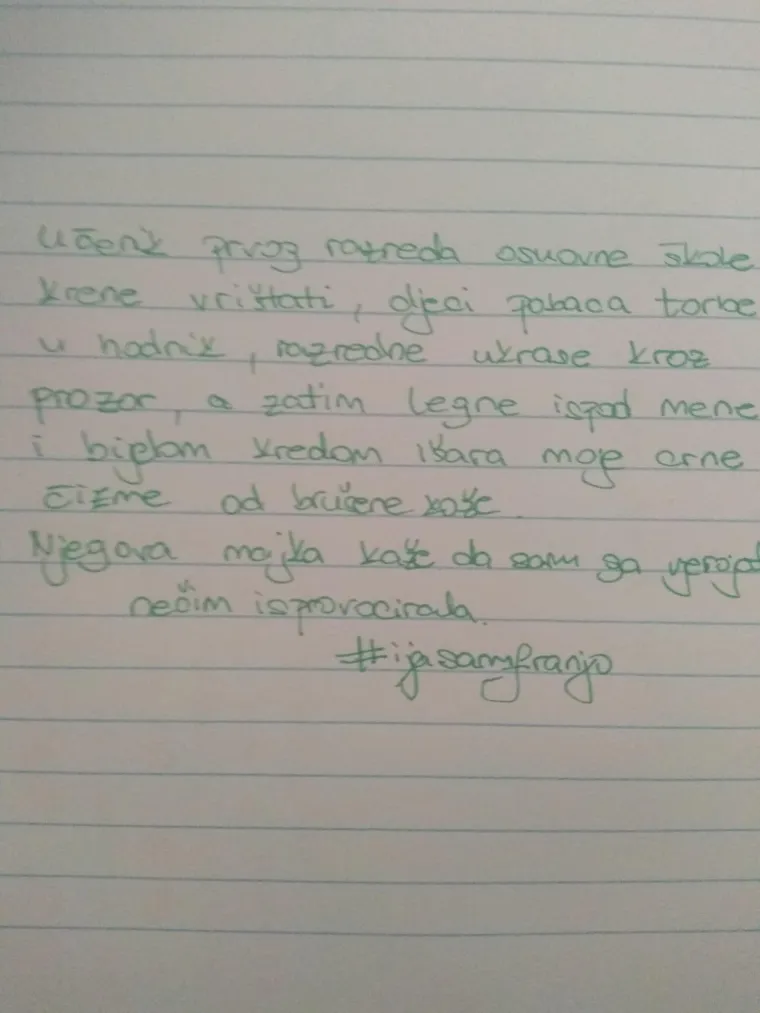 Učenik prvog razreda osnovne škole
krene vrištati, djeci pobaca torbe
u hodnik, razredne ukrase kroz
prozor, a zatim legne ispod mene
i bijelom kredom išara moje crne
čizme od brušene kože.
Njegova majka kaže da sam ga
nečim isprovocirala.
#ijasamfranjo